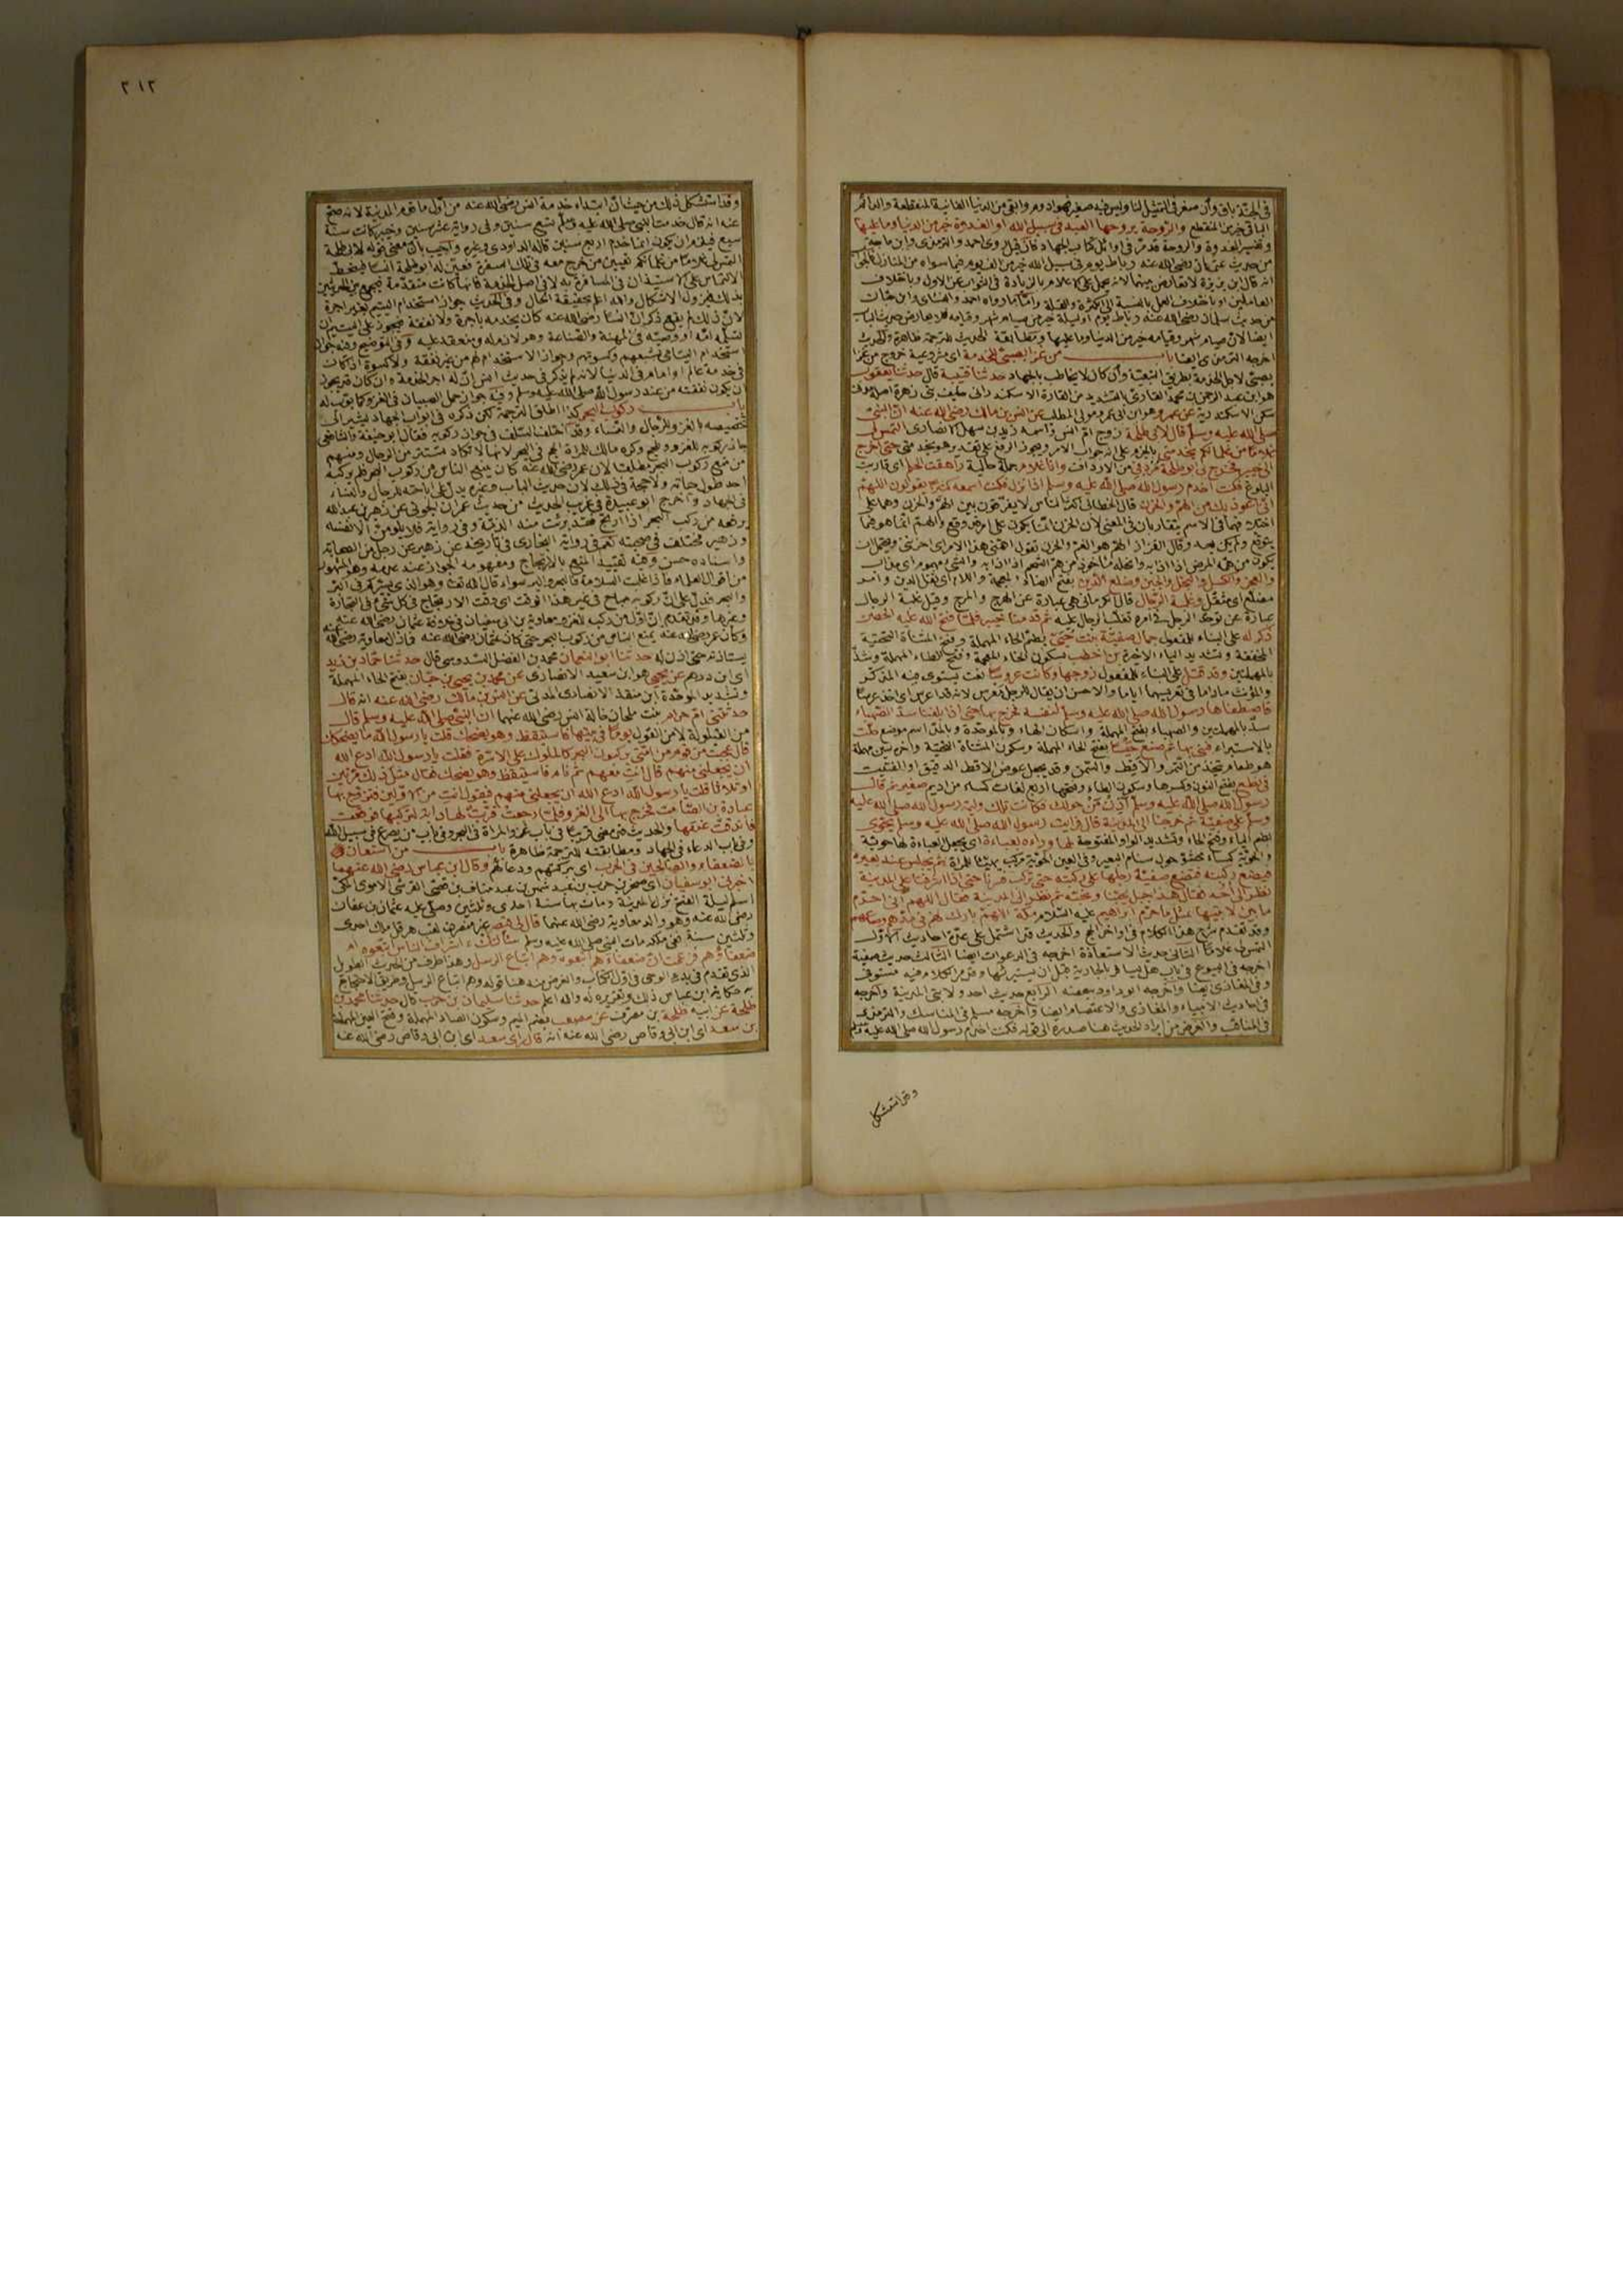 في الجنة باق وان صغر في التمثيل لنا وليس فيه صغير فهو ادوم وابقى من الدنيا الفانية المنقطعة والدائم
الباقي خير من المنقطع والروحة يروحها العبد في سبيل الله او الغدوة خير من الدنيا وما عليها
وتفسير الغدوة والروحة قد مر في اوائل كتاب الجهاد
من حديث عثمان رضي الله عنه رباط يوم في سبيل الله خير من الف يوم فيما سواه من المنازل
انه قال ابن بزيزة لا تعارض بينهما لانه يحمل على الاعلام بالزيادة في الثواب عن الاول وباختلاف
العاملين او باختلاف العمل بالنسبة الى الكثرة والقلة واما ما رواه احمد والنسائي وابن حبان
من حديث سلمان رضي الله عنه رباط يوم او ليلة خير من صيام شهر وقيامه فلا يعارض حديث الباب
ايضا لان صيام شهر وقيامه خير من الدنيا وما عليها ومطابقة الحديث للترجمة ظاهرة والحديث
اخرجه الترمذي ايضا باب من غزا بصبي للخدمة اي مشروعية خروج من غزا
بصبي لاجل الخدمة بطريق التبعية وان كان لا يخاطب بالجهاد حدثنا قتيبة قال حدثنا يعقوب
هو ابن عبد الرحمن بن محمد القاري بالتشديد من القارة الاسكندراني حليف بني زهرة اصله مدني
سكن الاسكندرية عن عمرو هو ابن ابي عمرو مولى المطلب عن انس بن مالك رضي الله عنه ان النبي
صلى الله عليه وسلم قال لابي طلحة زوج ام انس واسمه زيد بن سهل الانصاري التمس لي
غلاما من غلمانكم يخدمني بالجزم على انه جواب الامر ويجوز الرفع على تقدير هو يخدمني حتى اخرج
الى خيبر فخرج بي ابو طلحة مردفي من الارداف وانا غلام جملة حالية راهقت الحلم اي قاربت
البلوغ فكنت اخدم رسول الله صلى الله عليه وسلم اذا نزل فكنت اسمعه كثيرا يقول اللهم
اني اعوذ بك من الهم والحزن قال الخطابي اكثر الناس لا يفرقون بين الهم والحزن وهما على
اختلافهما في الاسم يتقاربان في المعنى لان الحزن انما يكون على امر وقع والهم انما هو فيما
يتوقع ولم يكن بعد وقال القزاز الهم هو الغم والحزن تقول اهمني هذا الامر اي احزنني ويحتمل ان
يكون من همه المرض اذا اذابه وانحله مأخوذ من هم الشحم اذا اذابه والشيء مهموم اي مذاب
والعجز والكسل والبخل والجبن وضلع الدين بفتح الضاد المعجمة واللام اي ثقل الدين وامر
مضلع اي مثقل وغلبة الرجال قال الكرماني هي عبارة عن الهرج والمرج وقيل غلبة الرجال
عبارة عن توحد الرجل في امره تغلب الرجال عليه ثم قدمنا خيبر فلما فتح الله عليه الحصن
ذكر له على البناء للمفعول جمال صفية بنت حيي بضم الحاء المهملة وفتح المثناة التحتية
المخففة وتشديد الياء الاخيرة بن اخطب بسكون الخاء المعجمة وفتح الطاء المهملة
وقد قتل على البناء للمفعول زوجها وكانت عروسا نعت يستوي فيه المذكر
والمؤنث ماداما في تعريسهما اياما والاحسن ان يقال للرجل معرس لانه قد اعرس اي اتخذ عرسا
فاصطفاها رسول الله صلى الله عليه وسلم لنفسه فخرج بها حتى اذا بلغنا سد الصهباء
سد بالمهملتين والصهباء بفتح المهملة واسكان الهاء وبالموحدة وبالمد اسم موضع حلت
بالاستبراء فبنى بها ثم صنع حيسا بفتح الحاء المهملة وسكون المثناة التحتية وآخره سين مهملة
هو طعام يتخذ من التمر والاقط والسمن وقد يجعل عوض الاقط الدقيق او الفتيت
في نطع بفتح النون وكسرها وسكون الطاء وفتحها اربع لغات كساء من اديم صغير ثم قال
رسول الله صلى الله عليه وسلم آذن من حولك فكانت تلك وليمة رسول الله صلى الله عليه
وسلم على صفية ثم خرجنا الى المدينة قال فرايت رسول الله صلى الله عليه وسلم يحوي
بضم الياء وفتح الحاء وتشديد الواو المفتوحة لها وراءه بعباءة اي يجعل العباءة لها حوية
والحوية كساء محشو حول سنام البعير ثم يجلس عند بعيره
فيضع ركبته فتضع صفية رجلها على ركبته حتى تركب فسرنا حتى اذا اشرفنا على المدينة
نظر الى احد فقال هذا جبل يحبنا ونحبه ثم نظر الى المدينة فقال اللهم اني احرم
ما بين لابتيها بمثل ما حرم ابراهيم عليه السلام مكة اللهم بارك لهم في مدهم وصاعهم
وقد تقدم شرح هذا الكلام في اواخر الحج والحديث قد اشتمل على عدة احاديث الاول
التمس لي غلاما الثاني حديث الاستعاذة اخرجه في الدعوات ايضا الثالث حديث صفية
اخرجه في البيوع في باب هل يسافر بالجارية قبل ان يستبرئها وقد مر الكلام فيه مستوفى
وفي المغازي ايضا واخرجه ابو داود ببعضه الرابع حديث احد ولابتي المدينة واخرجه
في احاديث الانبياء والمغازي والاعتصام ايضا واخرجه مسلم في المناسك والترمذي
في المناقب والغرض من ايراد الحديث هنا صدره الى قوله فكنت اخدم رسول الله صلى الله عليه وسلم
وقد استشكل
٣١٢
وقد استشكل ذلك من حيث ان ابتداء خدمة انس رضي الله عنه من اول ما قدم المدينة لانه صح
عنه انه قال خدمت النبي صلى الله عليه وسلم تسع سنين وفي رواية عشر سنين وخيبر كانت سنة
سبع فيلزم ان يكون انما خدم اربع سنين قاله الداودي وغيره واجيب بان معنى قوله لابي طلحة
التمس لي غلاما من غلمانكم تعيين من يخرج معه في تلك السفرة فعين له ابو طلحة انسا فينحط
الالتماس على الاستيذان في المسافرة به لا في اصل الخدمة فانها كانت متقدمة فيجمع بين الحديثين
بذلك فيزول الاشكال والله اعلم بحقيقة الحال وفي الحديث جواز استخدام اليتيم بغير اجرة
لان ذلك لم يقع ذكر ان انسا رضي الله عنه كان يخدمه باجرة ولا نفقة فيجوز على اليتيم ان
تسلمه امه او وصيه في المهنة والصناعة وهو لازم له ومنعقد عليه وفي التوضيح وفيه جواز
استخدام اليتامى بشبعهم وكسوتهم وجواز الاستخدام لهم من غير نفقة ولا كسوة اذا كان
في خدمة عالم او امام في الدنيا لانه لم يذكر في حديث انس ان له اجر الخدمة وان كان قد يجوز
ان يكون نفقته من عند رسول الله صلى الله عليه وسلم وفيه جواز حمل الصبيان في الغزو كما بوب له
باب ركوب البحر كذا اطلق الترجمة لكن ذكره في ابواب الجهاد يشير الى
تخصيصه بالغزو للرجال والنساء وقد اختلف السلف في جواز ركوبه فقال ابو حنيفة والشافعي
جاز ركوبه للغزو والحج وكره مالك للمراة الحج في البحر لانها لا تكاد تستتر من الرجال ومنهم
من منع ركوب البحر مطلقا لان عمر رضي الله عنه كان يمنع الناس من ركوب البحر فلم يركبه
احد طول حياته ولا حجة في ذلك لان حديث الباب وغيره يدل على اباحته للرجال والنساء
في الجهاد واخرج ابو عبيدة في غريب الحديث من حديث عمران الجوني عن زهير بن عبد الله
يرفعه من ركب البحر اذا ارتج فقد برئت منه الذمة وفي رواية فلا يلومن الا نفسه
وزهير مختلف في صحبته نعم في رواية البخاري في تاريخه عن زهير عن رجل من الصحابة
واسناده حسن وفيه تقييد المنع بالارتجاج ومفهومه الجواز عند عدمه وهو المشهور
من اقوال العلماء فاذا غلبت السلامة فالبحر والبر سواء قال الله تعالى وهو الذي يسيركم في البر
والبحر فدل على ان ركوبه مباح في غير هذا الوقت اي وقت الارتجاج في كل شيء في التجارة
وغيرها وقد تقدم ان اول من ركبه للغزو معاوية بن ابي سفيان في خلافة عثمان رضي الله عنه
وكان عمر رضي الله عنه يمنع الناس من ركوب البحر حتى كان عثمان رضي الله عنه فما زال معاوية رضي الله عنه
يستاذنه حتى اذن له حدثنا ابو النعمان محمد بن الفضل السدوسي قال حدثنا حماد بن زيد
اي ابن درهم عن يحيى هو ابن سعيد الانصاري عن محمد بن يحيى بن حبان بفتح الحاء المهملة
وتشديد الموحدة ابن منقذ الانصاري المدني عن انس بن مالك رضي الله عنه انه قال
حدثتني ام حرام بنت ملحان خالة انس رضي الله عنهما ان النبي صلى الله عليه وسلم قال
من القيلولة لا من القول يوما في بيتها فاستيقظ وهو يضحك قلت يا رسول الله ما يضحكك
قال عجبت من قوم من امتي يركبون البحر كالملوك على الاسرة فقلت يا رسول الله ادع الله
ان يجعلني منهم قال انت معهم ثم نام فاستيقظ وهو يضحك فقال مثل ذلك مرتين
او ثلاثا قلت يا رسول الله ادع الله ان يجعلني منهم فيقول انت من الاولين فتزوج بها
عبادة بن الصامت فخرج بها الى الغزو فلما رجعت قربت لها دابة لتركبها فوقعت
فاندقت عنقها والحديث قد مضى قريبا في باب غزو المراة في البحر وفي باب من يصرع في سبيل الله
وفي باب الدعاء في الجهاد ومطابقته للترجمة ظاهرة باب من استعان
بالضعفاء والصالحين في الحرب اي ببركتهم ودعائهم وقال ابن عباس رضي الله عنهما
اخبرني ابو سفيان اي صخر بن حرب بن عبد شمس بن عبد مناف بن قصي القرشي الاموي المكي
اسلم ليلة الفتح نزل المدينة ومات بها سنة احدى وثلثين وصلى عليه عثمان بن عفان
رضي الله عنه وهو والد معاوية رضي الله عنهما قال لي قيصر غير منصرف لقب هرقل ملك احدى
وثلثين سنة ففي ملكه مات النبي صلى الله عليه وسلم سالتك اشراف الناس اتبعوه ام
ضعفاؤهم فزعمت ان ضعفاءهم اتبعوه وهم اتباع الرسل وهذا طرف من الحديث الطويل
الذي تقدم في بدء الوحي في اول الكتاب والغرض منه هنا قوله وهم اتباع الرسل وطريق الاحتجاج
به حكاية ابن عباس ذلك وتقريره له والله اعلم حدثنا سليمان بن حرب قال حدثنا محمد بن
طلحة عن ابيه طلحة بن مصرف عن مصعب بضم الميم وسكون الصاد المهملة وفتح العين المهملة
بن سعد اي ابن ابي وقاص رضي الله عنه انه قال راى سعد اي ابن ابي وقاص رضي الله عنه